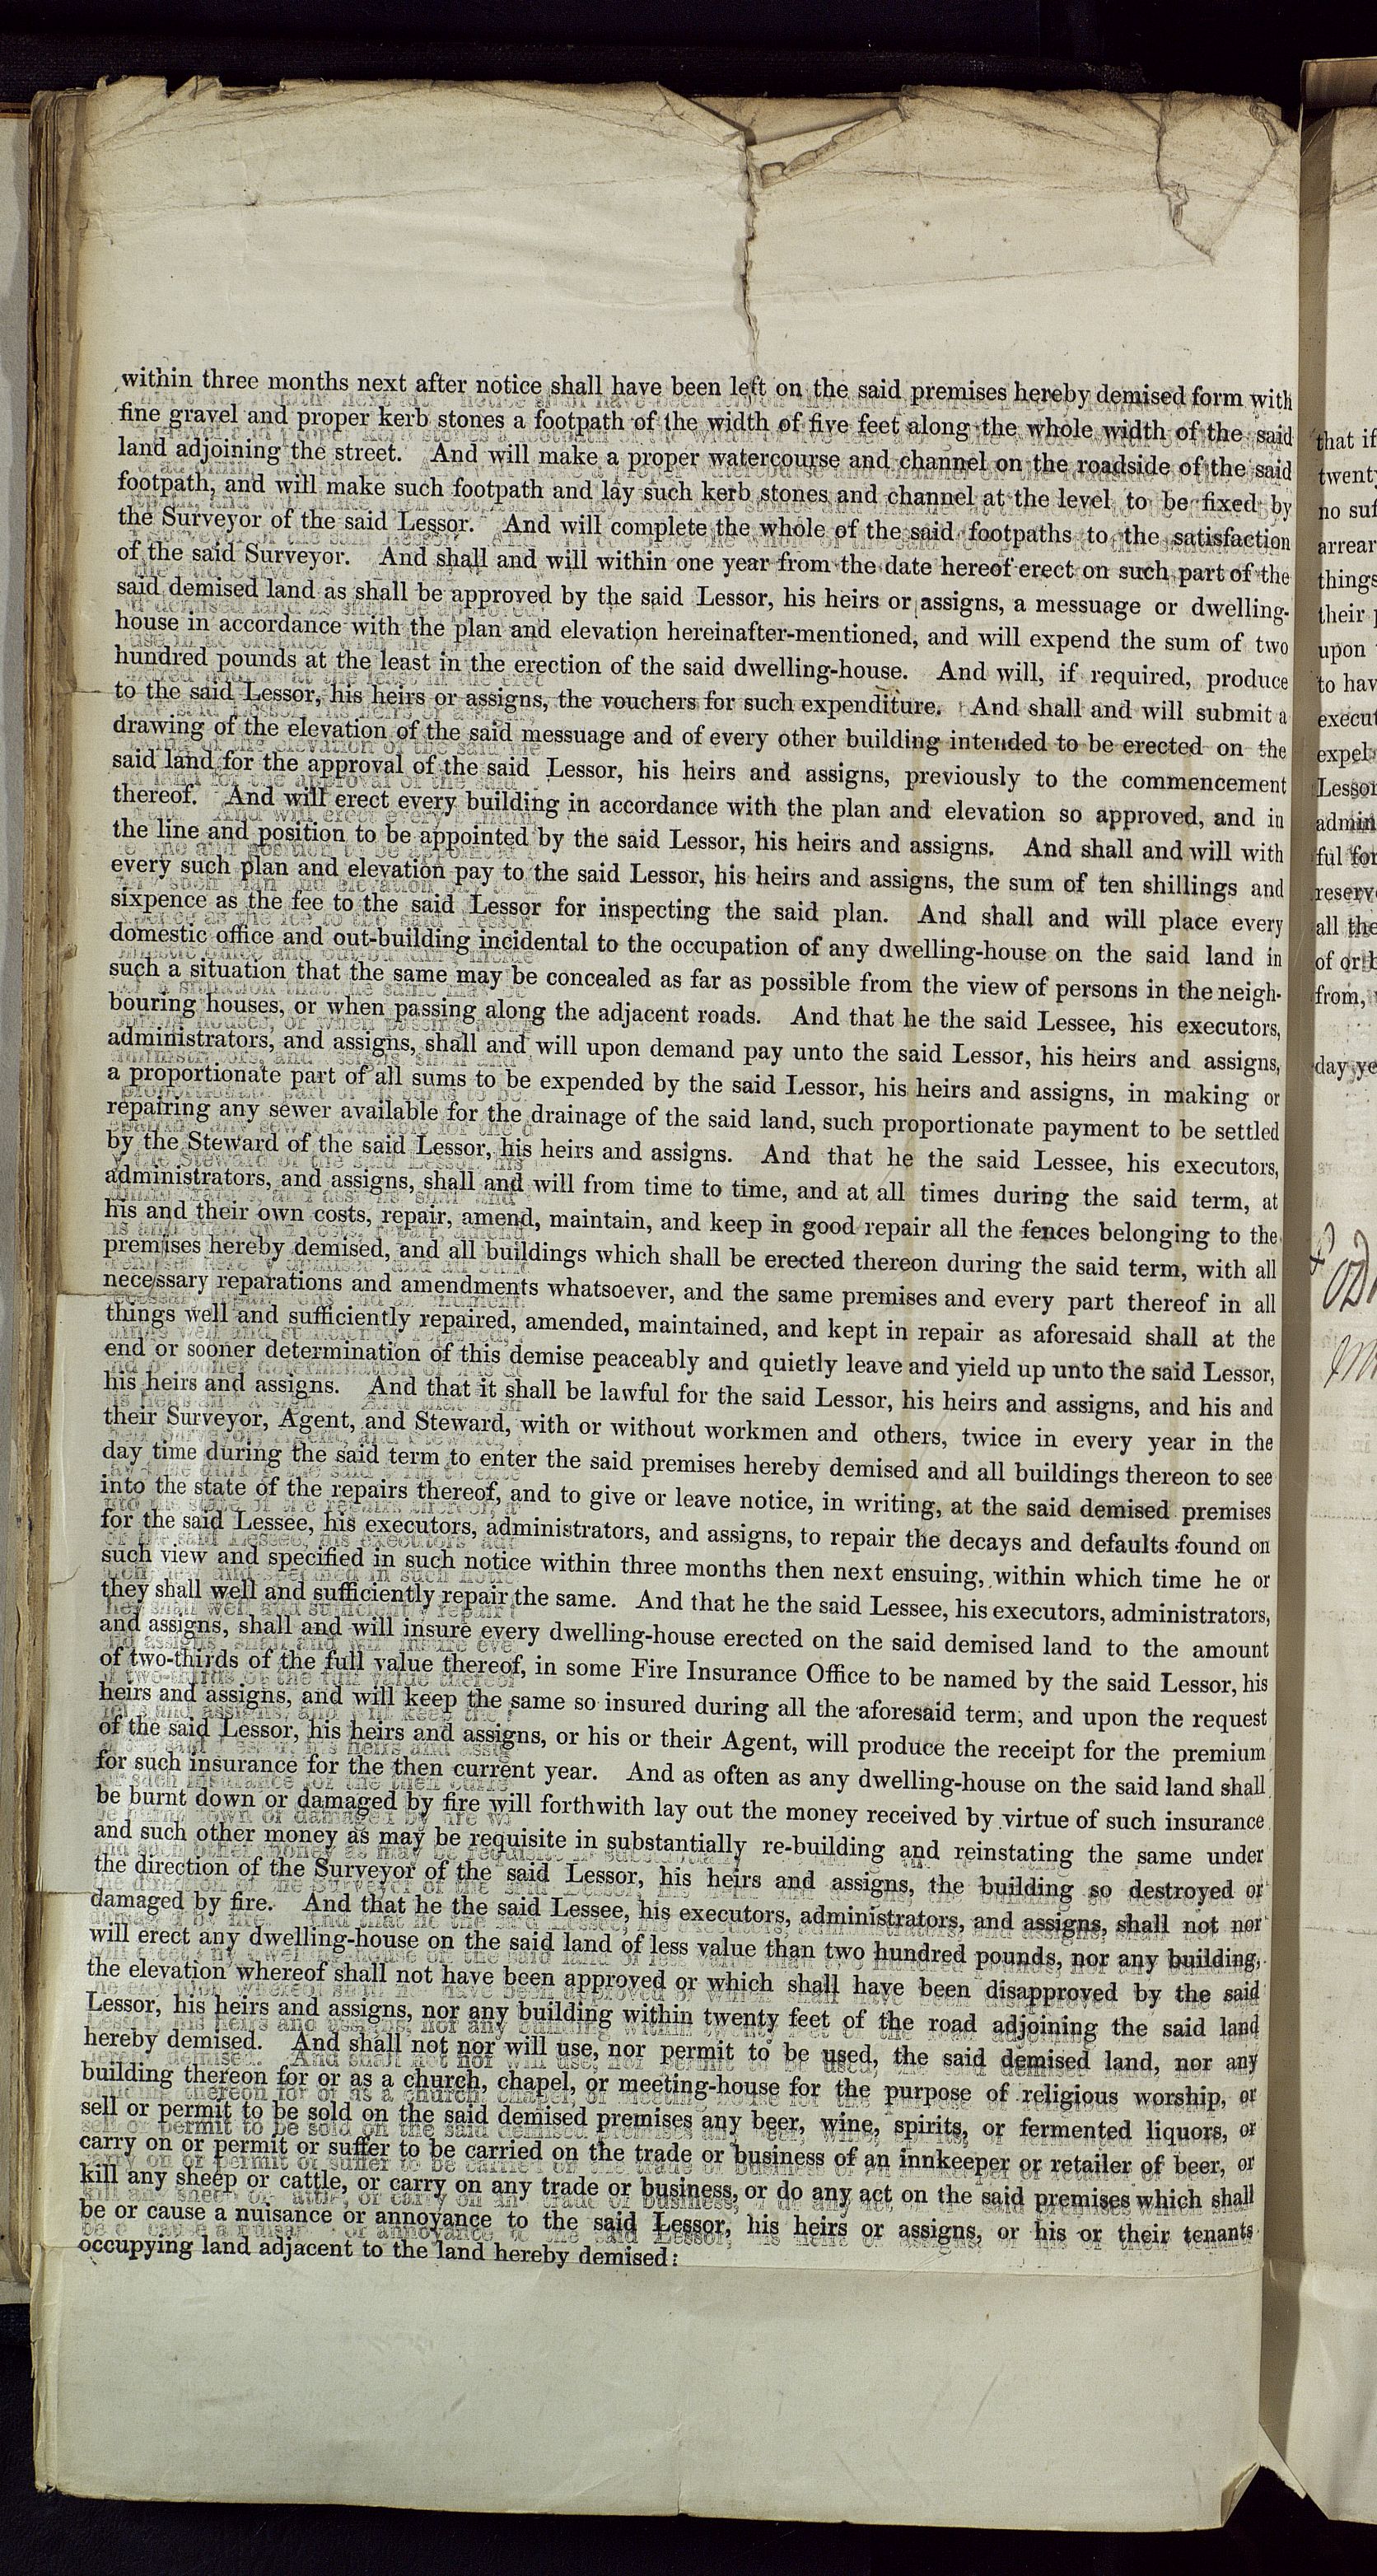 within three months next after notice shall have been left on the said premises hereby demised form with
fine gravel and proper kerb stones a footpath of the width of five feet along the whole width of the said
land adjoining the street. And will make a proper watercourse and channel on the roadside of the said
footpath, and will make such footpath and lay such kerb stones and channel at the level to be fixed by
the Surveyor of the said Lessor. And will complete the whole of the said footpaths to the satisfaction
of the said Surveyor. And shall and will within one year from the date hereof erect on such part of the
said demised land as shall be approved by the said Lessor, his heirs or assigns, a messuage or dwelling-
house in accordance with the plan and elevation hereinafter-mentioned, and will expend the sum of two
hundred pounds at the least in the erection of the said dwelling-house. And will, if required, produce
to the said Lessor, his heirs or assigns, the vouchers for such expenditure. And shall and will submit a
drawing of the elevation of the said messuage and of every other building intended to be erected on the
said land for the approval of the said Lessor, his heirs and assigns, previously to the commencement
thereof. And will erect every building in accordance with the plan and elevation so approved, and in
the line and position to be appointed by the said Lessor, his heirs and assigns. And shall and will with
every such plan and elevation pay to the said Lessor, his heirs and assigns, the sum of ten shillings and
sixpence as the fee to the said Lessor for inspecting the said plan. And shall and will place every
domestic office and out-building incidental to the occupation of any dwelling-house on the said land in
such a situation that the same may be concealed as far as possible from the view of persons in the neigh-
bouring houses, or when passing along the adjacent roads. And that he the said Lessee, his executors,
administrators, and assigns, shall and will upon demand pay unto the said Lessor, his heirs and assigns,
a proportionate part of all sums to be expended by the said Lessor, his heirs and assigns, in making or
repairing any sewer available for the drainage of the said land, such proportionate payment to be settled
by the Steward of the said Lessor, his heirs and assigns. And that he the said Lessee, his executors,
administrators, and assigns, shall and will from time to time, and at all times during the said term, at
his and their own costs, repair, amend, maintain, and keep in good repair all the fences belonging to the
premises hereby demised, and all buildings which shall be erected thereon during the said term, with all
necessary reparations and amendments whatsoever, and the same premises and every part thereof in all
things well and sufficiently repaired, amended, maintained, and kept in repair as aforesaid shall at the
end or sooner determination of this demise peaceably and quietly leave and yield up unto the said Lessor,
his heirs and assigns. And that it shall be lawful for the said Lessor, his heirs and assigns, and his and
their Surveyor, Agent, and Steward, with or without workmen and others, twice in every year in the
day time during the said term to enter the said premises hereby demised and all buildings thereon to see
into the state of the repairs thereof, and to give or leave notice, in writing, at the said demised premises
for the said Lessee, his executors, administrators, and assigns, to repair the decays and defaults found on
such view and specified in such notice within three months then next ensuing, within which time he or
they shall well and sufficiently repair the same. And that he the said Lessee, his executors, administrators,
and assigns, shall and will insure every dwelling-house erected on the said demised land to the amount
of two-thirds of the full value thereof, in some Fire Insurance Office to be named by the said Lessor, his
heirs and assigns, and will keep the same so insured during all the aforesaid term, and upon the request
of the said Lessor, his heirs and assigns, or his or their Agent, will produce the receipt for the premium
for such insurance for the then current year. And as often as any dwelling-house on the said land shall
be burnt down or damaged by fire will forthwith lay out the money received by virtue of such insurance
and such other money as may be requisite in substantially re-building and reinstating the same under
the direction of the Surveyor of the said Lessor, his heirs and assigns, the building so destroyed or
damaged by fire. And that he the said Lessee, his executors, administrators, and assigns, shall not nor
will erect any dwelling-house on the said land of less value than two hundred pounds, nor any building,
the elevation whereof shall not have been approved or which shall have been disapproved by the said
Lessor, his heirs and assigns, nor any building within twenty feet of the road adjoining the said land
hereby demised. And shall not nor will use, nor permit to be used, the said demised land, nor any
building thereon for or as a church, chapel, or meeting-house for the purpose of religious worship, or
sell or permit to be sold on the said demised premises any beer, wine, spirits, or fermented liquors, or
carry on or permit or suffer to be carried on the trade or business of an innkeeper or retailer of beer, or
kill any sheep or cattle, or carry on any trade or business, or do any act on the said premises which shall
be or cause a nuisance or annoyance to the said Lessor, his heirs or assigns, or his or their tenants
occupying land adjacent to the land hereby demised:
that if
twenty
no suf
arrear
things
their
upon
to hav
execut
expel
Lessor
admin
ful for
reserv
all the
of or b
from,
day ye